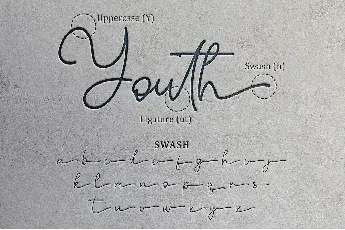 Uppercase (Y)
Youth
Swash (h)
Ligature (ut)
SWASH
a b c d e f g h i j
k l m n o p q r s
t u v w x y z